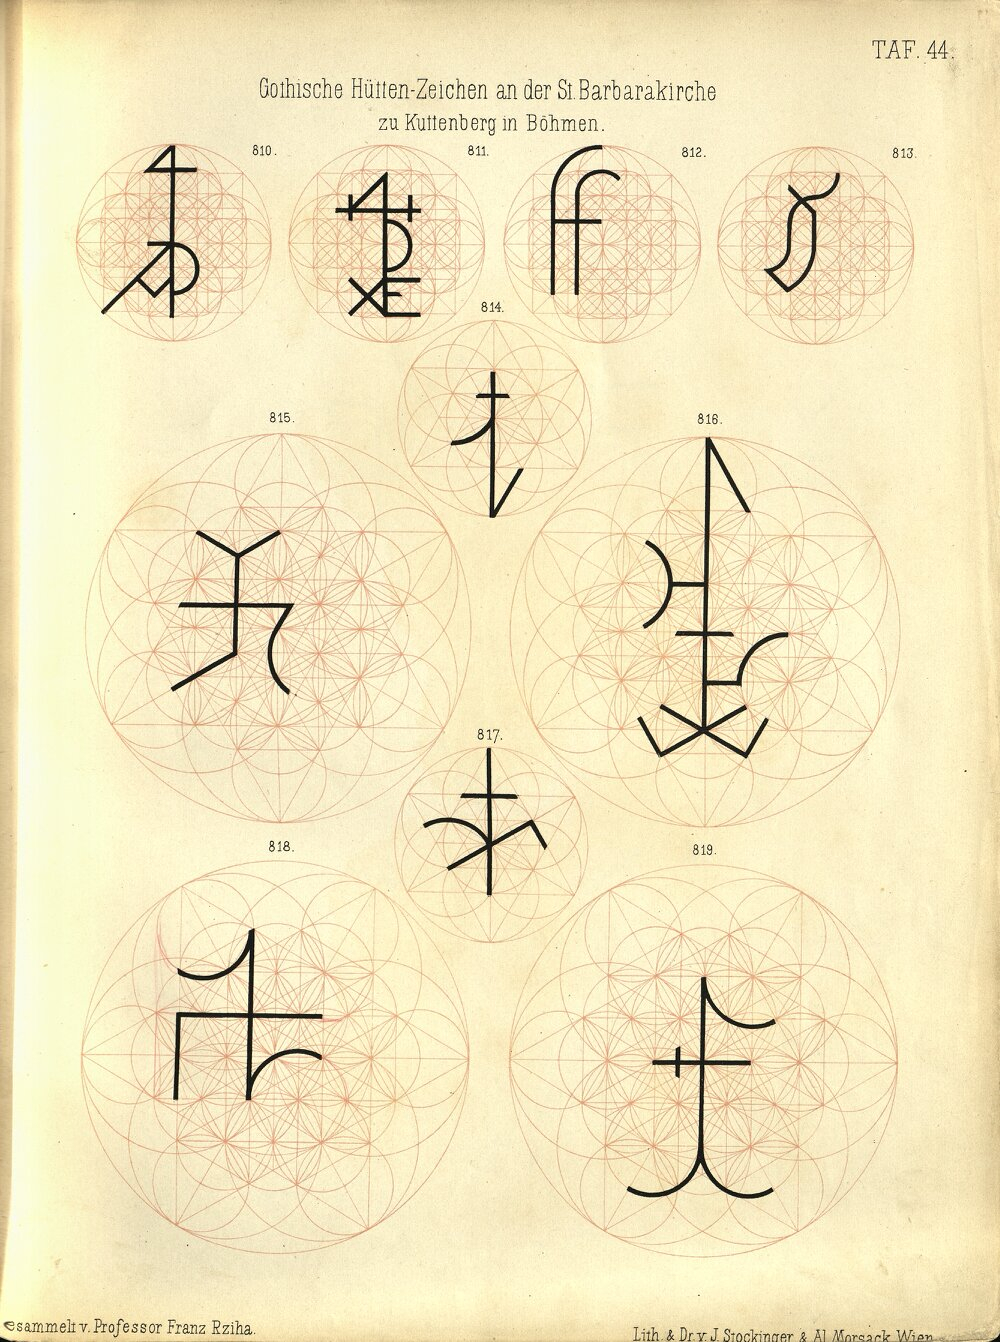 TAF. 44.
Gothische Hütten-Zeichen an der St. Barbarakirche
zu Kuttenberg in Böhmen.
810. 811. 812. 813.
814.
815. 816.
817.
818. 819.
esammelt v. Professor Franz Rziha.
Lith. & Dr. v. J. Stockinger & Al. Morsack, Wien.